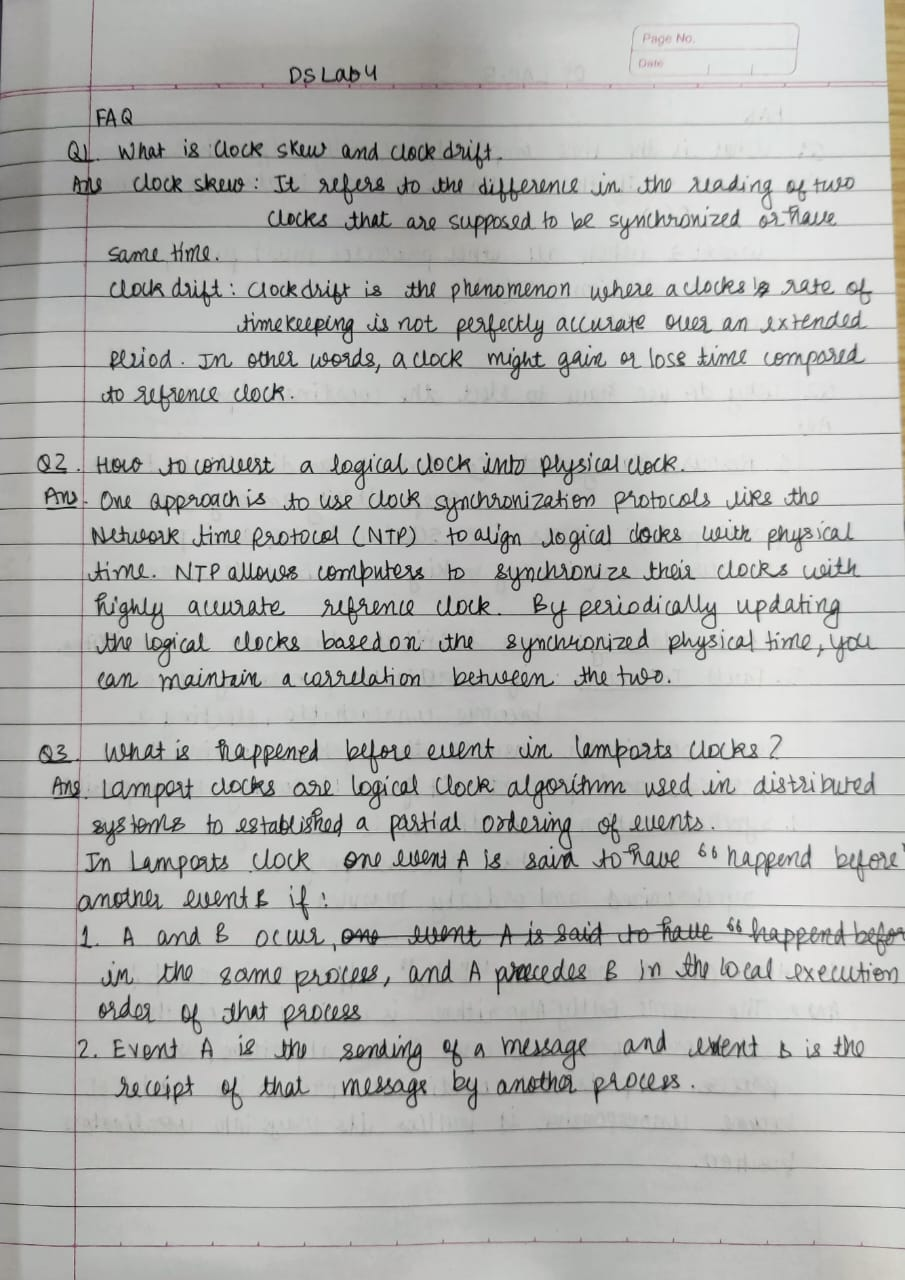 Page No.
Date
DS Lab 4
FAQ
Q1. What is Clock skew and clock drift.
Ans clock skew : It refers to the difference in the reading of two
clocks that are supposed to be synchronized or have
same time.
clock drift : Clock drift is the phenomenon where a clocks rate of
timekeeping is not perfectly accurate over an extended
period. In other words, a clock might gain or lose time compared
to refrence clock.
Q2. How to convert a logical clock into physical clock.
Ans. One approach is to use clock synchronization protocols like the
Network time protocol (NTP) to align logical clocks with physical
time. NTP allows computers to synchronize their clocks with
highly accurate refrence clock. By periodically updating
the logical clocks based on the synchronized physical time, you
can maintain a correlation between the two.
Q3 What is happened before event in lamports clocks ?
Ans. Lamport clocks are logical clock algorithm used in distributed
systems to established a partial ordering of events.
In Lamports clock one event A is said to have "happend before"
another event B if :
1. A and B occur, one event A is said to have "happend befor
in the same process, and A precedes B in the local execution
order of that process
2. Event A is the sending of a message and event B is the
receipt of that message by another process.